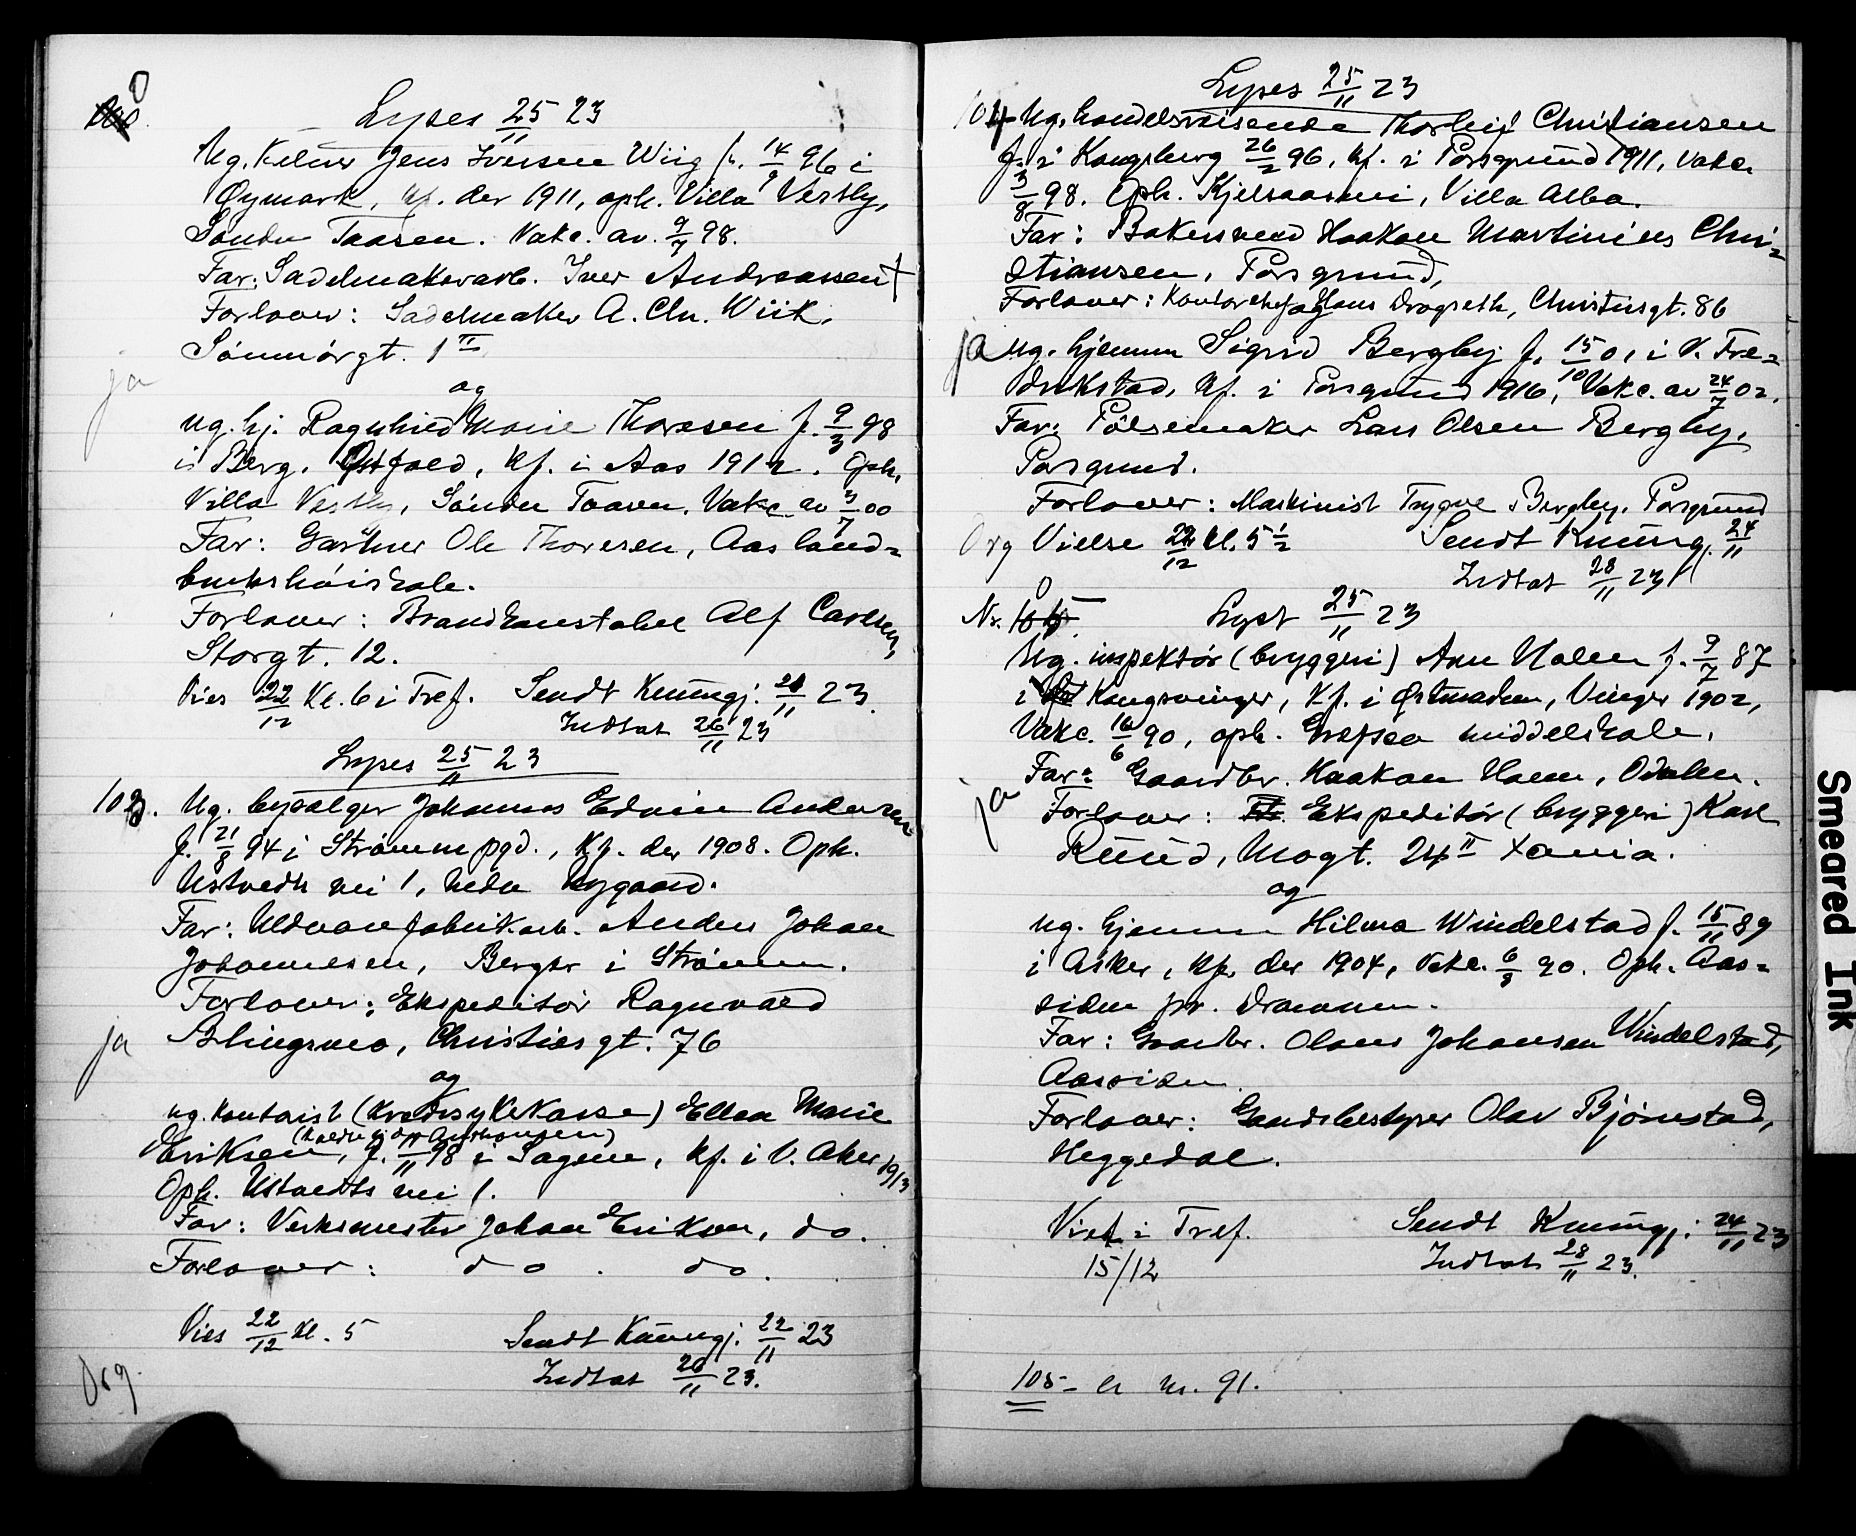 Lyses 25/11 23
Ug. Kelner Jens Iversen Wiig f. 14/9 96 i
Øymark, kf. der 1911, oph. Villa Vestby,
Søndre Taasen. Vakc. av. 9/7 98.
Far: Sadelmakerarb. Iver Andreassen †
Forlover: Sadelmaker A. Chr. Wiik,
1 II
ja
og
ug. hj. Ragnhild Marie Thoresen f. 9/3 98
i Berg, Østfold, kf. i Aas 1912. Oph.
Villa Vestby, Søndre Taasen. Vakc. av 3/7 00
Far: Gartner Ole Thoresen, Aas land=
brukshøiskole.
Forlover: Brandkonstabel Alf Carlsen,
Storgt. 12.
Vies 22/12 Kl. 6 i Tref. Sendt Kunngj. 21/11 23.
Indtat 26/11 23
Lyses 25/11 23
103. Ug. bysælger Johannes Edvin Andersen
f. 21/8 94 i Strømm pgd., kf. der 1908. Oph.
Ustvedts vei 1, nedre Nygaard.
Far: Uldvarefabrik.arb. Anders Johan
Johannesen, Berger i Strømm.
Forlover: Ekspeditør Ragnvald
Blingsmo, Christies gt. 76
ja
og
ug. kontorist (Kredssykekasse) Ellen Marie
Eriksen, f. 98 i Sagene, kf. i V. Aker 19/13
Oph. Ustvedts vei 1.
Far: Verksmester Johan Eriksen, do.
Forlover: do. do.
Vies 22/12 kl. 5 Sendt Kunngj. 22/11 23
Indtat 26/11 23.
Org.
Lyses 25/11 23
104 Ug. handelsreisende Thorleif Christiansen
f. i Kongsberg 26/2 96, kf. i Porsgrund 1911, vakc.
3/8 98. Oph. Kjelsaasvei, Villa Alba.
Far: Bakersvend Haakon Martinius Chri=
stiansen, Porsgrund,
Forlover: Kontorchef Hans Dragseth, Christiesgt. 86
og
ja ug. hjemmev Sigrid Bergby f. 15/10 01 i V. Fre=
drikstad, kf. i Porsgrund 1916, Vakc. av 24/7 02.
Far: Pølsemaker Lars Olsen Bergby,
Porsgrund.
Forlover: Maskinist Trygve Bergby, Porsgrund
Org Vielse 22/12 kl. 5 1/2 Sendt Kunng. 24/11
Indtat 28/11 23
Nr. 105. Lyst 25/11 23
Ug. inspektør (bryggeri) Arne Holen f. 9/7 87
i Kongsvinger, kf. i Østmarken, Vinger 1902,
Vakc. 16/6 90, oph. Grefsen middelskole.
Far: Gaardbr. Haakon Holen, Odalen.
ja
Forlover: Ekspeditør (bryggeri) Karl
Ruud, Mogt. 24 II Xania.
og
ug. hjemme Hilma Windelstad f. 15/11 89
i Asker, kf. der 1904, Vakc. 6/8 90. Oph. Aas=
siden pr. Drammen.
Far: Gaardbr. Olaus Johansen Windelstad,
Aassiden.
Forlover: Gaardsbestyrer Olav Bjørnstad,
Heggedal.
Viet i Tref. Sendt Kunngj. 24/11 23
15/12 Indtat 28/11 23.
105 - er nr. 91.
Smeared Ink